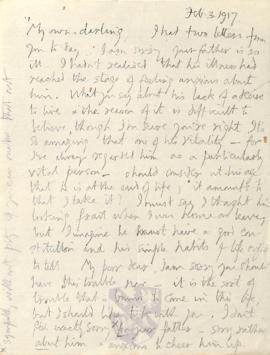 Feb 3 1917
"My own darling I had two letters from
you to day. I am sorry your father is so
ill. I hadn't realised that his illness had
reached the stage of feeling anxious about
him. What you say about his lack of desire
to live as the reason of it is difficult to
believe, though I'm sure you're right. It's
so amazing that one of his vitality – for
I've always regarded him as a particularly
vital person – should consider at his age
that he is at the end of life; it amounts to
that I take it? I must say I thought him
looking frail when I was home on leave,
but I imagine he must have a good con-
stitution and his simple habits of life ought
to tell. My poor dear, I am sorry you should
have this trouble near – it is the sort of
trouble that is bound to come in this life,
but I should like to be with you. I don't
feel exactly sorry for your father – sorry rather
about him & anxious to cheer him up.